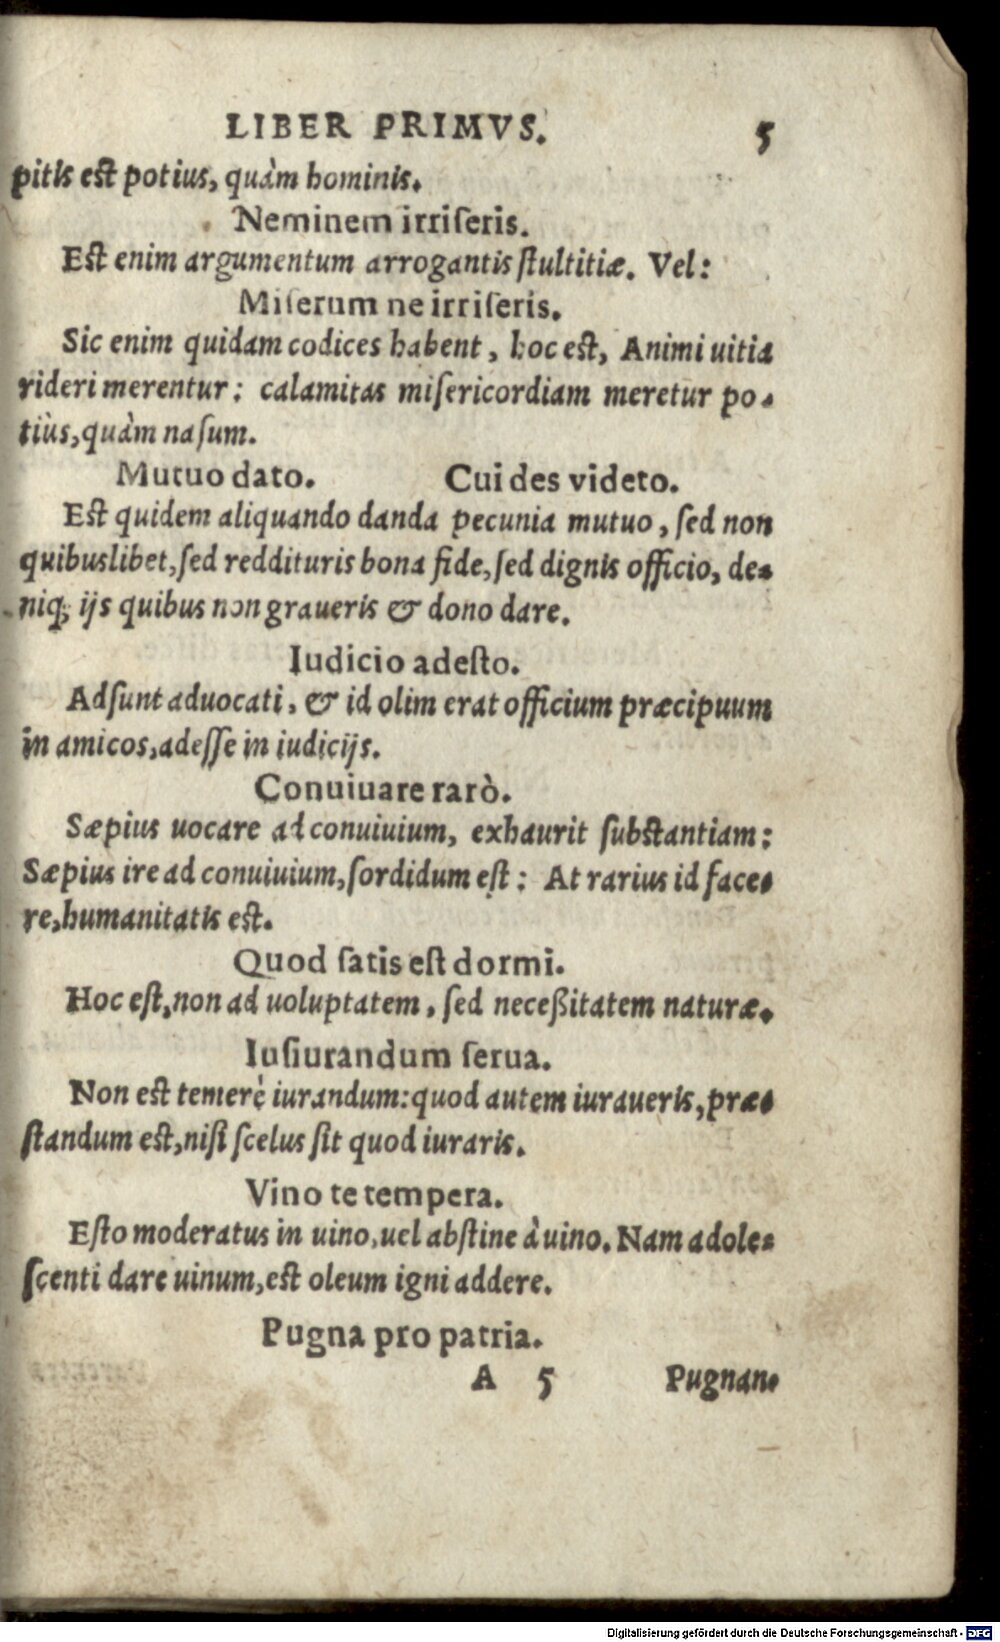 LIBER PRIMVS. 5
pitis est potius, quàm hominis.
Neminem irriſeris.
Est enim argumentum arrogantis ſtultitiæ. Vel:
Miſerum ne irriſeris.
Sic enim quidam codices habent, hoc est, Animi uitia
rideri merentur: calamitas miſericordiam meretur po-
tiùs, quàm naſum.
Mutuo dato. Cui des videto.
Est quidem aliquando danda pecunia mutuo, ſed non
quibuslibet, ſed reddituris bona fide, ſed dignis officio, de-
niq; ijs quibus non graueris & dono dare.
Iudicio adeſto.
Adſunt aduocati, & id olim erat officium præcipuum
in amicos, adeſſe in iudicijs.
Conuiuare rarò.
Sæpius uocare ad conuiuium, exhaurit ſubstantiam:
Sæpius ire ad conuiuium, ſordidum eſt: At rarius id face-
re, humanitatis est.
Quod ſatis eſt dormi.
Hoc eſt, non ad uoluptatem, ſed neceßitatem naturæ.
Iuſiurandum ſerua.
Non est temerè iurandum: quod autem iuraueris, præ-
ſtandum est, niſi ſcelus ſit quod iuraris.
Vino te tempera.
Eſto moderatus in uino, uel abſtine à uino. Nam adole-
ſcenti dare uinum, est oleum igni addere.
Pugna pro patria.
A 5 Pugnan-
Digitalisierung gefördert durch die Deutsche Forschungsgemeinschaft - DFG